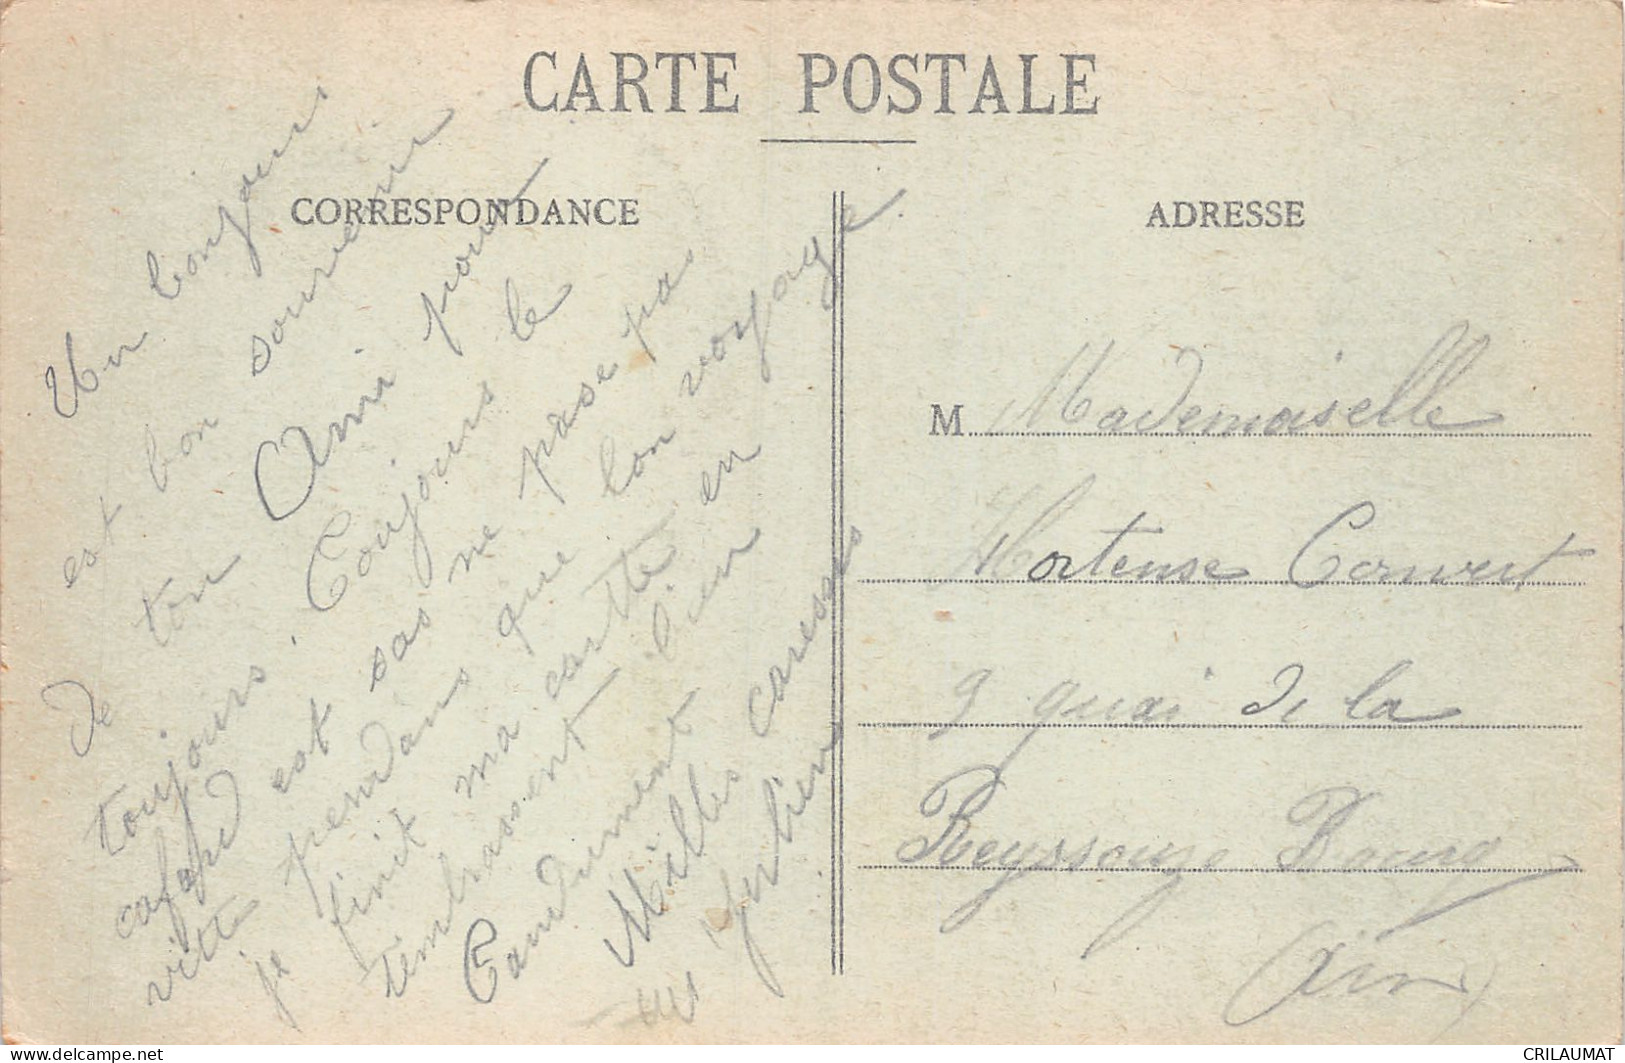 CARTE POSTALE
CORRESPONDANCE
Un bonjour
est bon souvenir
de ton Ami pour
toujours. Toujours le
cafard est sas ne pase pas
vitte pendans que ton voyage
je finit ma cartte en
tembrassent bien
Tandrement
Milles caresses
Julien
ADRESSE
M Mademoiselle
Hortense Convert
9 quai de la
Reyssouze Bourg
Ain
CRILAUMAT